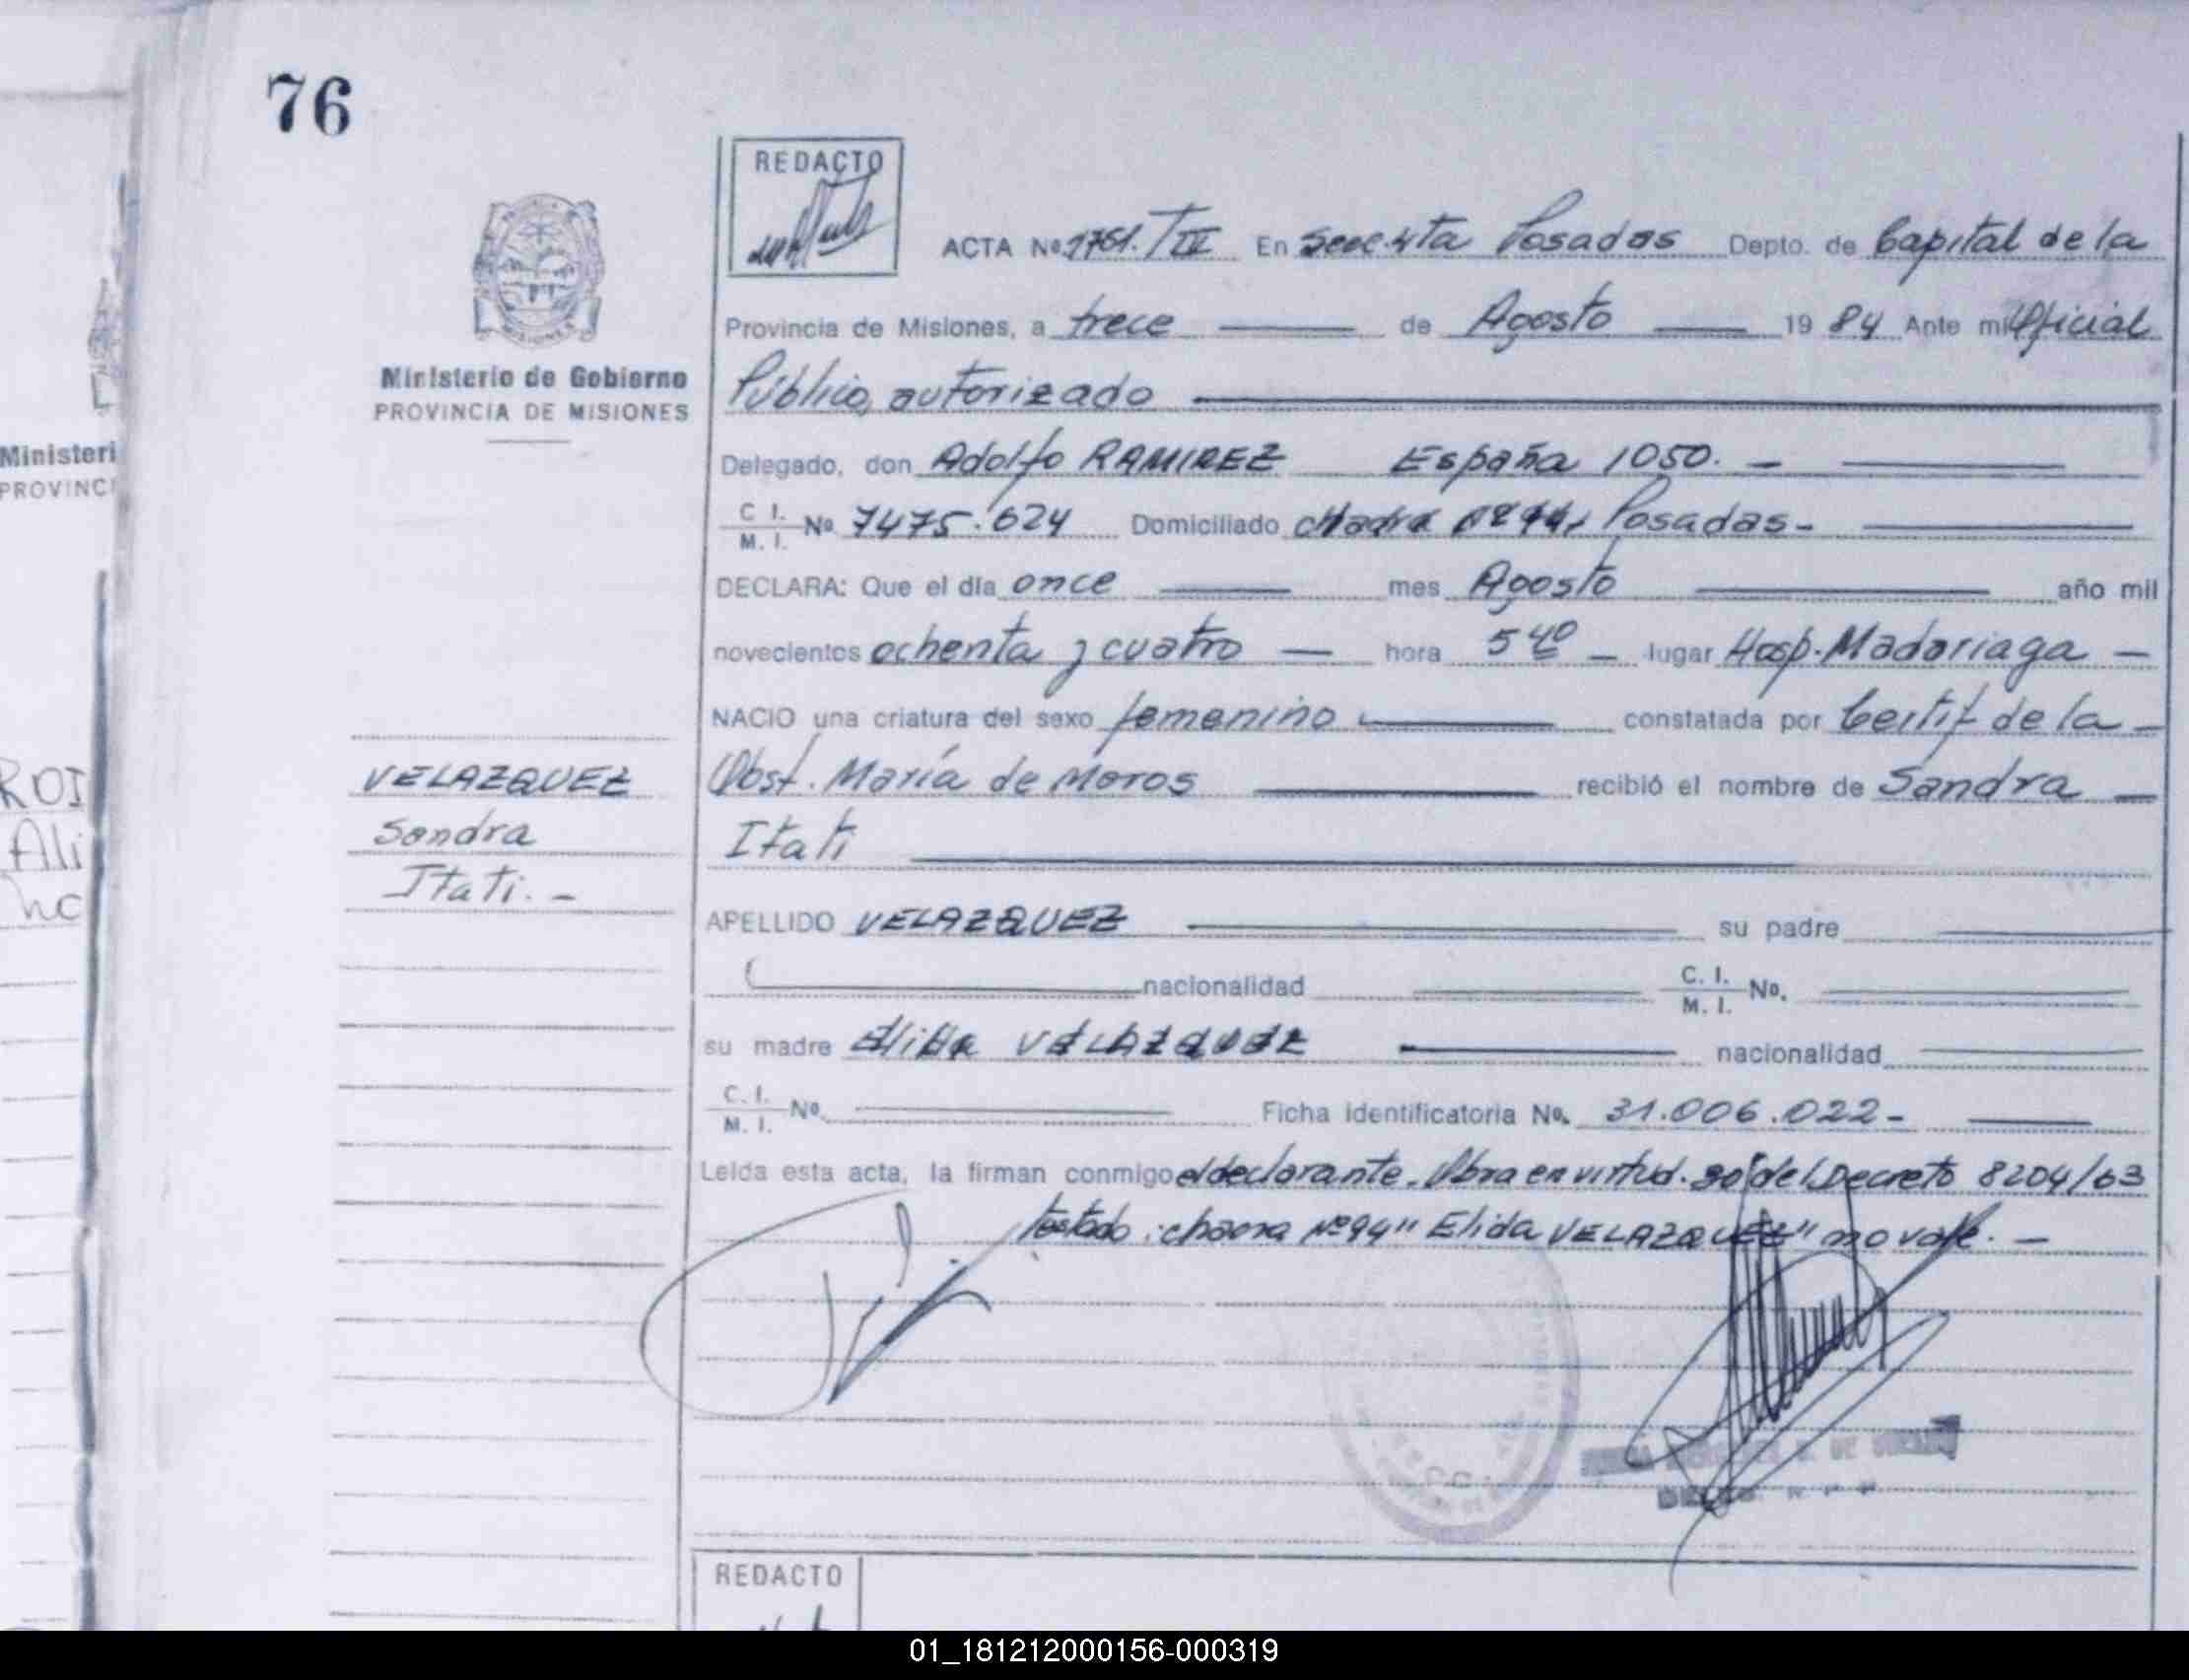 76
REDACTO
ACTA Nº 1761. T/IV En Posadas Depto. de Capital de la
Provincia de Misiones, a trece de Agosto 19 84 Ante mi Oficial
Ministerio de Gobierno
PROVINCIA DE MISIONES
Público, autorizado
Delegado, don Adolfo RAMIREZ España 1050. -
C I. M. I. Nº 7475.624 Domiciliado Posadas-
DECLARA: Que el día once mes Agosto año mil
novecientos ochenta y cuatro - hora 5 40 - lugar Hosp. Madariaga -
NACIO una criatura del sexo femenino constatada por Certif de la -
Obst. María de Moros recibió el nombre de Sandra -
Itati
VELAZQUEZ
Sandra
Itati. -
APELLIDO VELAZQUEZ su padre
nacionalidad C. I. M. I. No.
su madre Elida VELAZQUEZ nacionalidad
C. I. M. I. Nº Ficha identificatoria Nº. 31.006.022-
Leída esta acta, la firman conmigo el declarante. Obra en virtud. del Decreto 8204/63
testado: Nº 94" Elida VELAZQUEZ" no vale. -
REDACTO
Ministeri
PROVINCI
ROJ
Ali
01_181212000156-000319